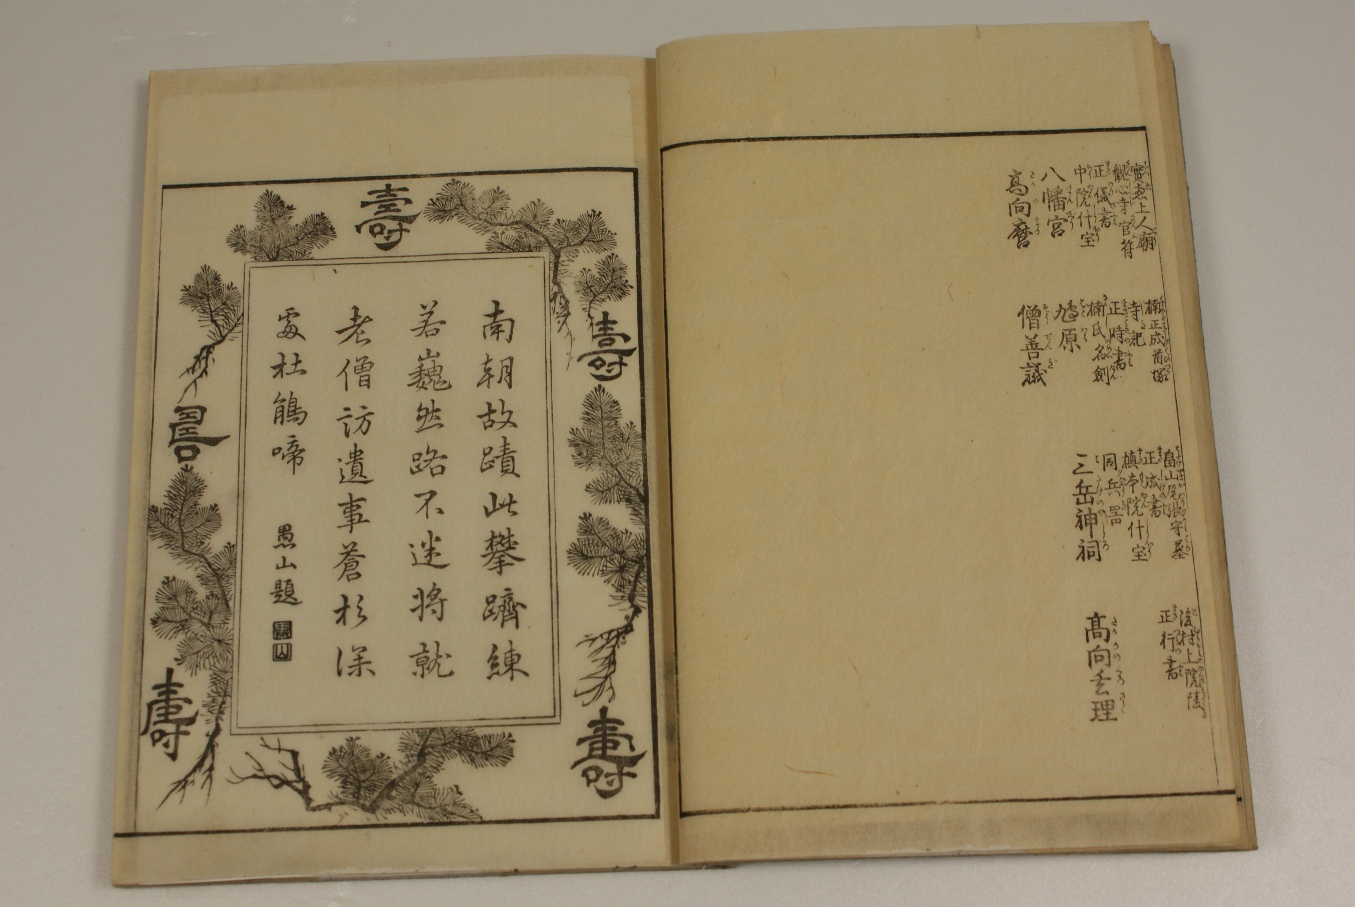 實惠上人廟 楠正成首塚 畠山尾張守墓 後村上院陵
觀心寺官符 寺記 正成書 正行書
正儀書 正時書 槙本院什宝
中院什宝 楠氏名劍 同兵器
八幡宮 鳩原 三岳神祠 髙向玄理
髙向麿 僧善議
壽
壽
壽
壽
壽
南朝故蹟此攀躋練
若巍然路不迷将就
老僧訪遺事蒼杉深
處杜鵑啼 愚山題